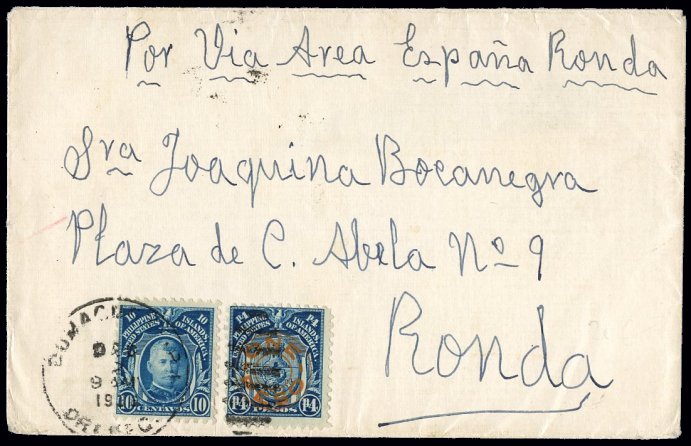 Por Via Area España Ronda
Sra Joaquina Bocanegra
Plaza de C. Abela Nº 9
Ronda
10 10
PHILIPPINE ISLANDS
UNITED STATES OF AMERICA
10 CENTAVOS 10
P4 P4
PHILIPPINE ISLANDS
UNITED STATES OF AMERICA
P4 PESOS P4